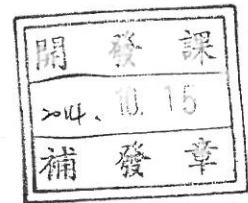 開發課
2014.10.15
補發章